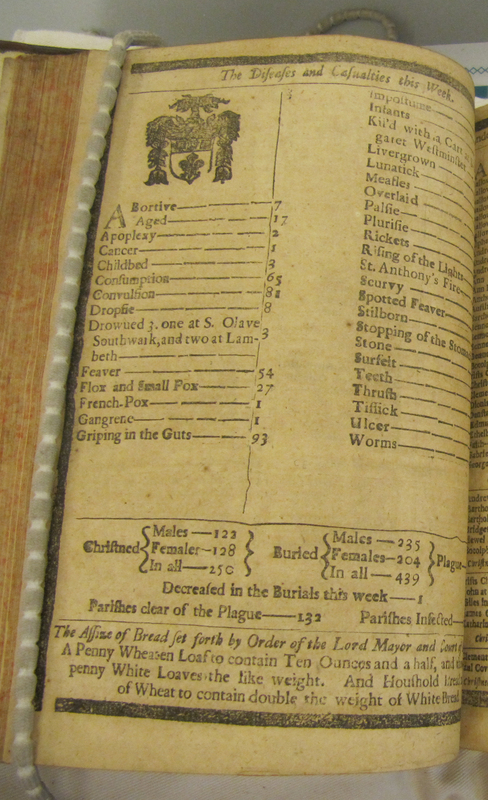 The Diseases and Casualties this Week.
Abortive 7
Aged 17
Apoplexy 2
Cancer 1
Childbed 3
Consumption 65
Convulsion 81
Dropsie 8
Drowned 3. one at S. Olave
Southwark, and two at Lam- 3
beth
Feaver 54
Flox and Small Pox 27
French-Pox 1
Gangrene 1
Griping in the Guts 93
Impostume
Infants
Kil'd with a Cart
garet Westminster
Livergrown
Lunatick
Measles
Overlaid
Palsie
Plurisie
Rickets
Rising of the Lights
St. Anthony's Fire
Scurvy
Spotted Feaver
Stilborn
Stopping of the
Stone
Surfeit
Teeth
Thrush
Tissick
Ulcer
Worms
Christned Males — 122 Females — 128 In all — 250
Buried Males — 235 Females — 204 In all — 439 Plague
Decreased in the Burials this week — 1
Parishes clear of the Plague — 132 Parishes Infected —
The Assize of Bread set forth by Order of the Lord Mayor and Court
A Penny Wheaten Loaf to contain Ten Ounces and a half, and
penny White Loaves the like weight. And Houshold
of Wheat to contain double the weight of White